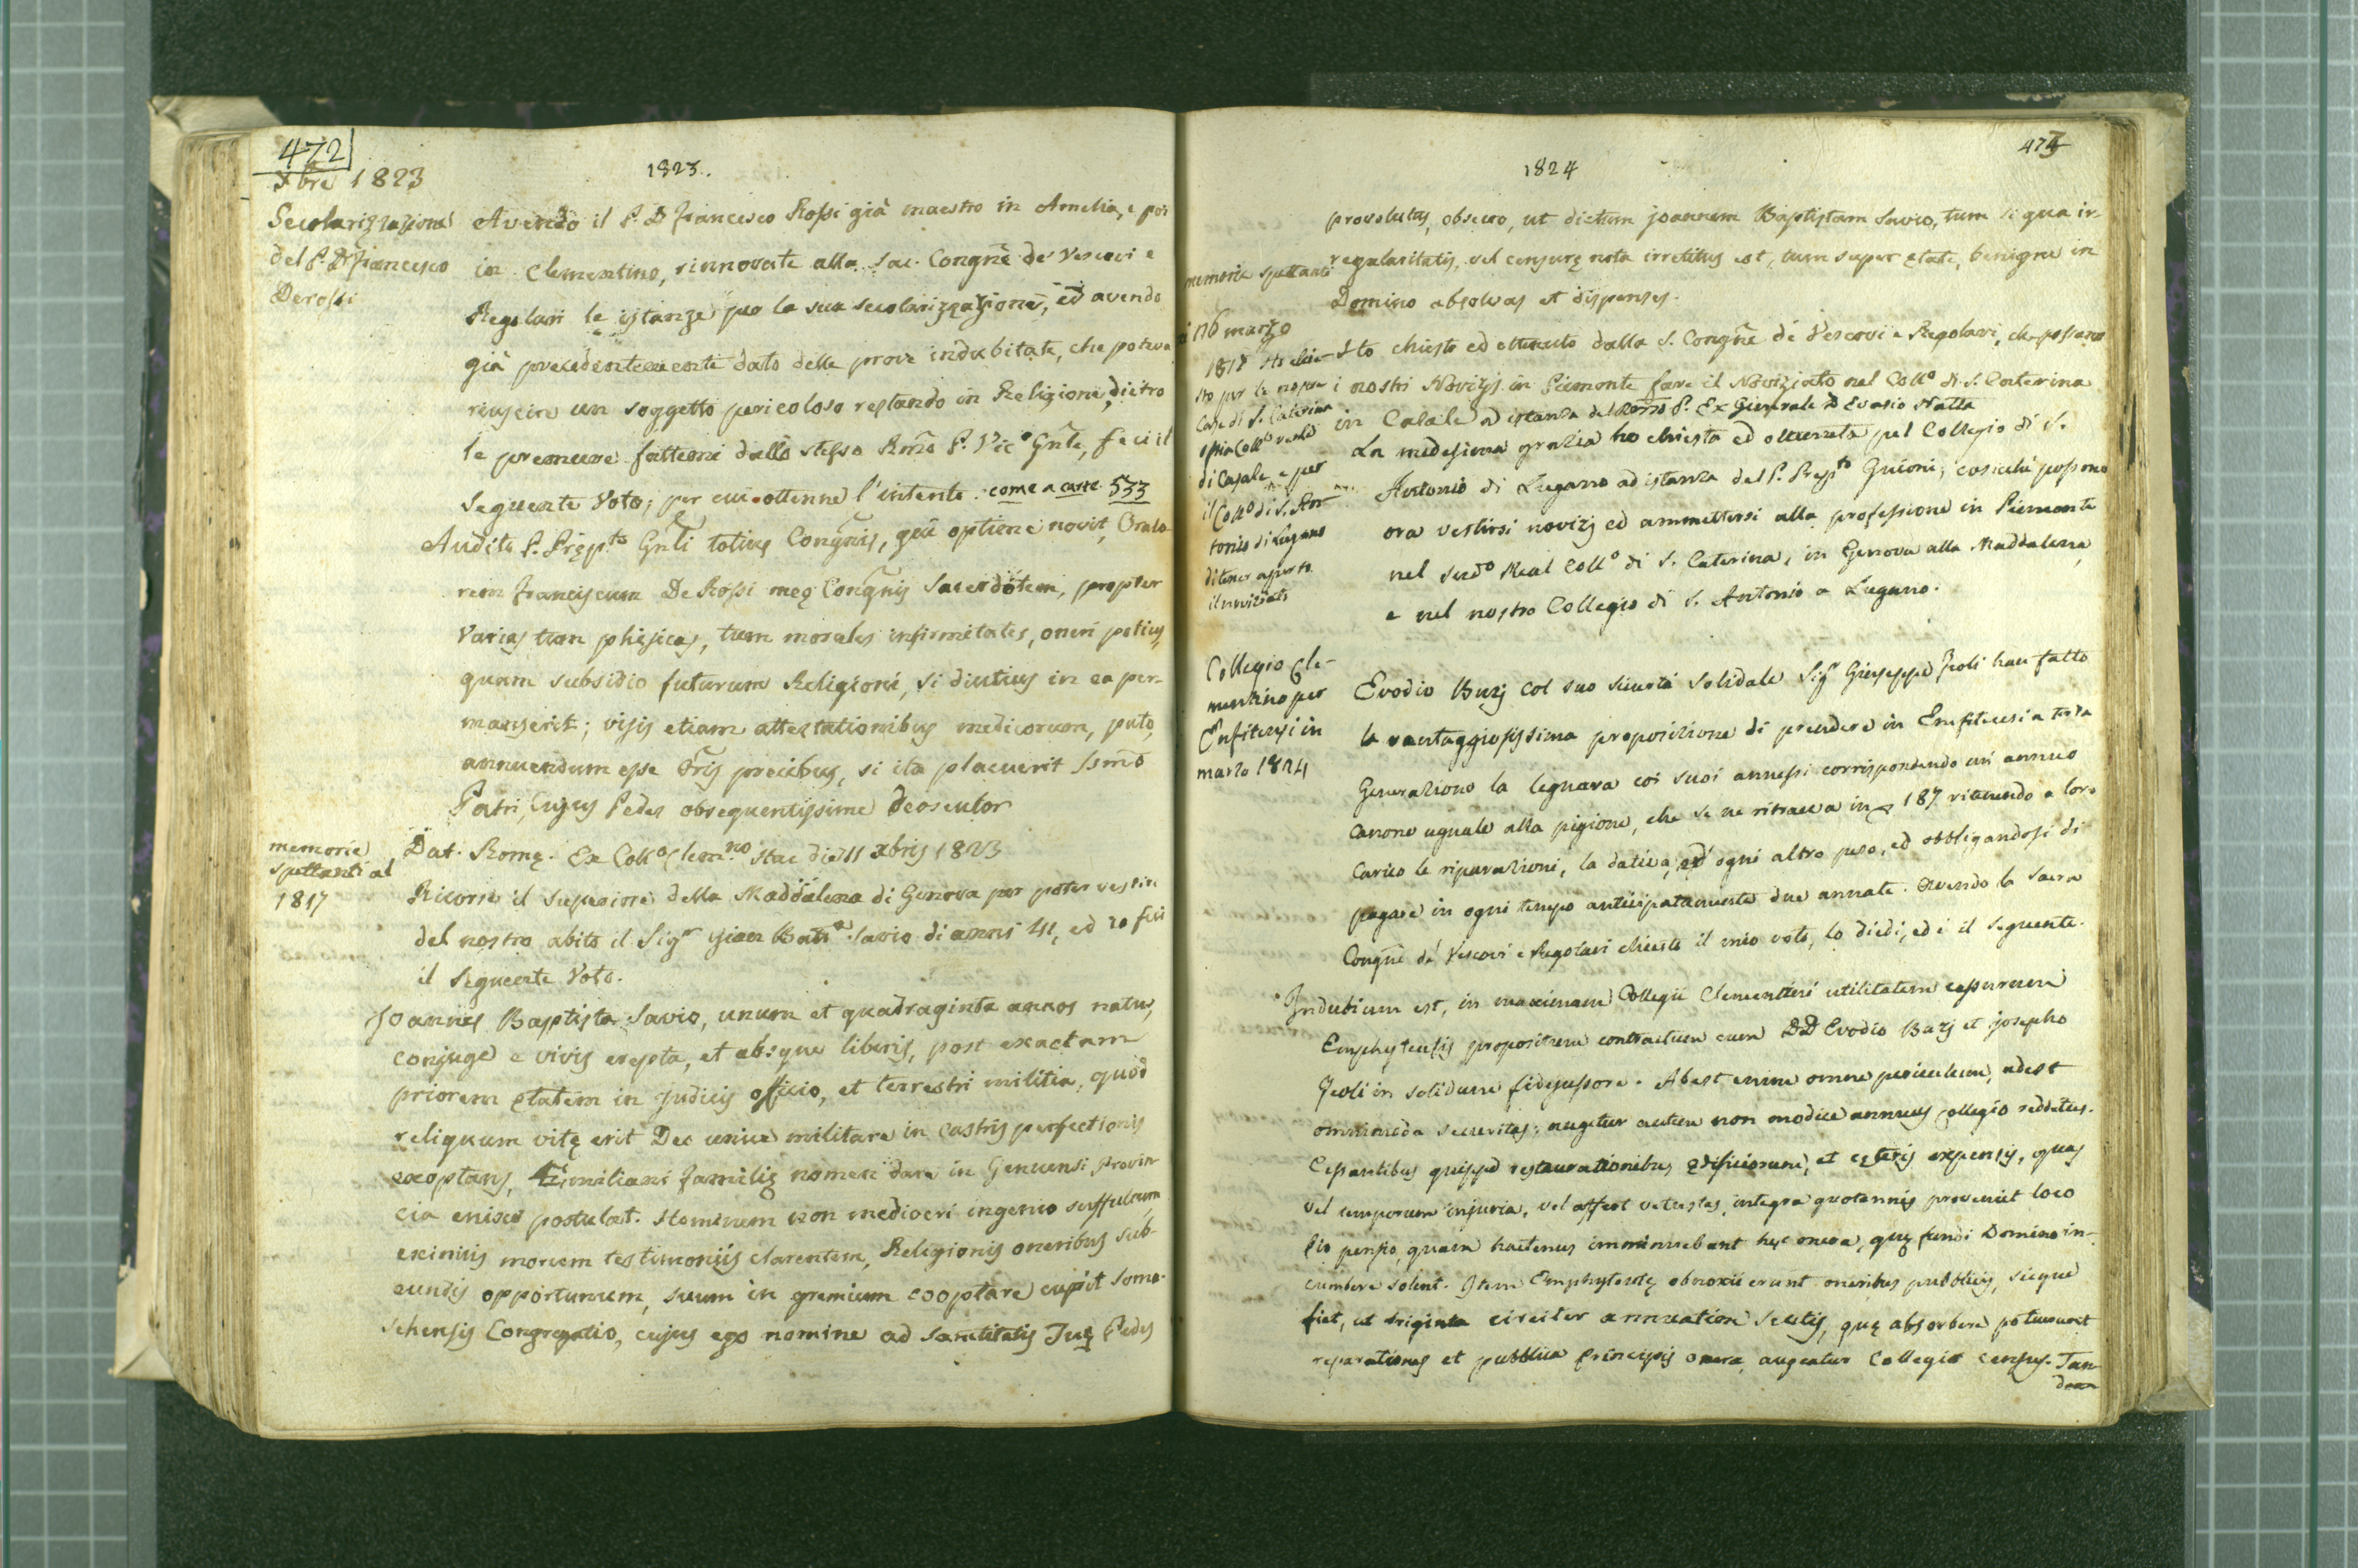 472
Xbre 1823
1823.
Secolarizzazione
del P. D. Francesco
Derossi
Avendo il P. D. Francesco Rossi già maestro in Amelia, e poi
in Clementino, rinnovate alla Sac. Congne de' Vescovi e
Regolari le istanze per la sua secolarizzazione, ed avendo
già precedentemente dato delle prove indubitate, che poteva
riuscire un soggetto pericoloso restando in Religione, dietro
le premure fattemi dallo stesso Rmo P. Vic.o Gnle, feci il
seguente Voto; per cui ottenne l'intento. come a carte 533
Audito P. Pręp.to Gnli totius Congnis, qui optime novit, Orato-
rem Franciscum De Rossi meę Congnis Sacerdotem, propter
varias tum phisicas, tum morales infirmitates, oneri potius,
quam subsidio futurum Religioni, si diutius in ea per-
manserit; visis etiam attestationibus medicorum, puto,
annuendum esse Oris precibus, si ita placuerit Ssmo
Patri, Cujus Pedes obsequentissime deosculor
Dat. Romę. Ex Coll.o Clem.no hac die 11 Xbris 1823
memorie
spettanti al
1817
Ricorse il Superiore della Maddalena di Genova per poter vestire
del nostro abito il Sig.r Gian Batt.a Savio di anni 41, ed io feci
il seguente Voto.
Joannes Baptista Savio, unum et quadraginta annos natus,
conjuge e vivis erepta, et absque liberis, post exactam
priorem ętatem in judicis officio, et terrestri militia, quod
reliquum vitę erit Deo unice militare in castris perfectionis
exoptans, Ęmiliani familię nomen dare in Genuensi Provin
cia enixe postulat. Hominem non mediocri ingenio suffultum,
eximiis morum testimoniis clarentem, Religionis oneribus sub-
eundis opportunum, suum in gremium cooptare cupit Soma-
schensis Congregatio, cujus ego nomine ad Sanctitatis Tuę Pedes
473
1824
provolutus, obsecro, ut dictum Joannem Baptistam Savio, tum si qua ir-
regularitatis, vel censurę nota irretitus est, tum super ętate, benigne in
Domino absolvas et dispenses.
memorie spettanti
16 marzo
1818 Ho chie-
sto per le nostre
Case di S. Caterina
ossia Coll.o reale
di Casale e per
il Coll.o di S. An-
tonio di Lugano
di tener aperto
il noviziato
Ho chiesto ed ottenuto dalla S. Congne de' Vescovi e Regolari, che possano
i nostri Novizj in Piemonte fare il Noviziato nel Coll.o di S. Caterina
in Casale ad istanza del Rmo P. Ex Generale D. Evasio Natta
La medesima grazia ho chiesta ed ottenuta pel Collegio di S.
Antonio di Lugano ad istanza del P. Prep.to Guioni; cosicchè possono
ora vestirsi novizj ed ammettersi alla professione in Piemonte
nel sud.o Real Coll.o di S. Caterina, in Genova alla Maddalena,
e nel nostro Collegio di S. Antonio a Lugano.
Collegio Cle-
mentino per
Enfiteusi in
marzo 1824
Evodio Buzj col suo sicurtà solidale Sig.r Giuseppe Jeoli han fatto
la vantaggiosissima proposizione di prendere in Emfiteusi a terza
Generazione la legnara coi suoi annessi corrispondendo un annuo
canone uguale alla pigione, che se ne ritraeva in 187 ritenendo a loro
carico le riparazioni, la dativa, ed ogni altro peso, ed obbligandosi di
pagare in ogni tempo anticipatamente due annate. Avendo la Sacra
Congne de' Vescovi e Regolari chiesto il mio voto, lo diedi, ed è il seguente.
Indubium est, in maximam Collegii Clementini utilitatem cessurum
Emphyteusis propositum contractum cum DD Evodio Buzj et Josepho
Jeoli in solidum fidejussore. Abest enim omne periculum, adest
omnimoda securitas; augetur autem non modice annuus Collegio redditus.
Cessantibus quippe restaurationibus ędificiorum, et cęteris expensis, quas
vel temporum injuria, vel affert vetustas, integra quotannis proveniet loco
pio pensio, quam hactenus imminuebant hęc onera, quę fundi Domino in-
cumbere solent. Item Emphyteutę obnoxii erunt oneribus pubblicis, sicque
fiet, ut triginta circiter annuatim scutis, quę absorbere potuerunt
reparationes et pubblica Principis onera, augeatur Collegii census. Tan-
dem